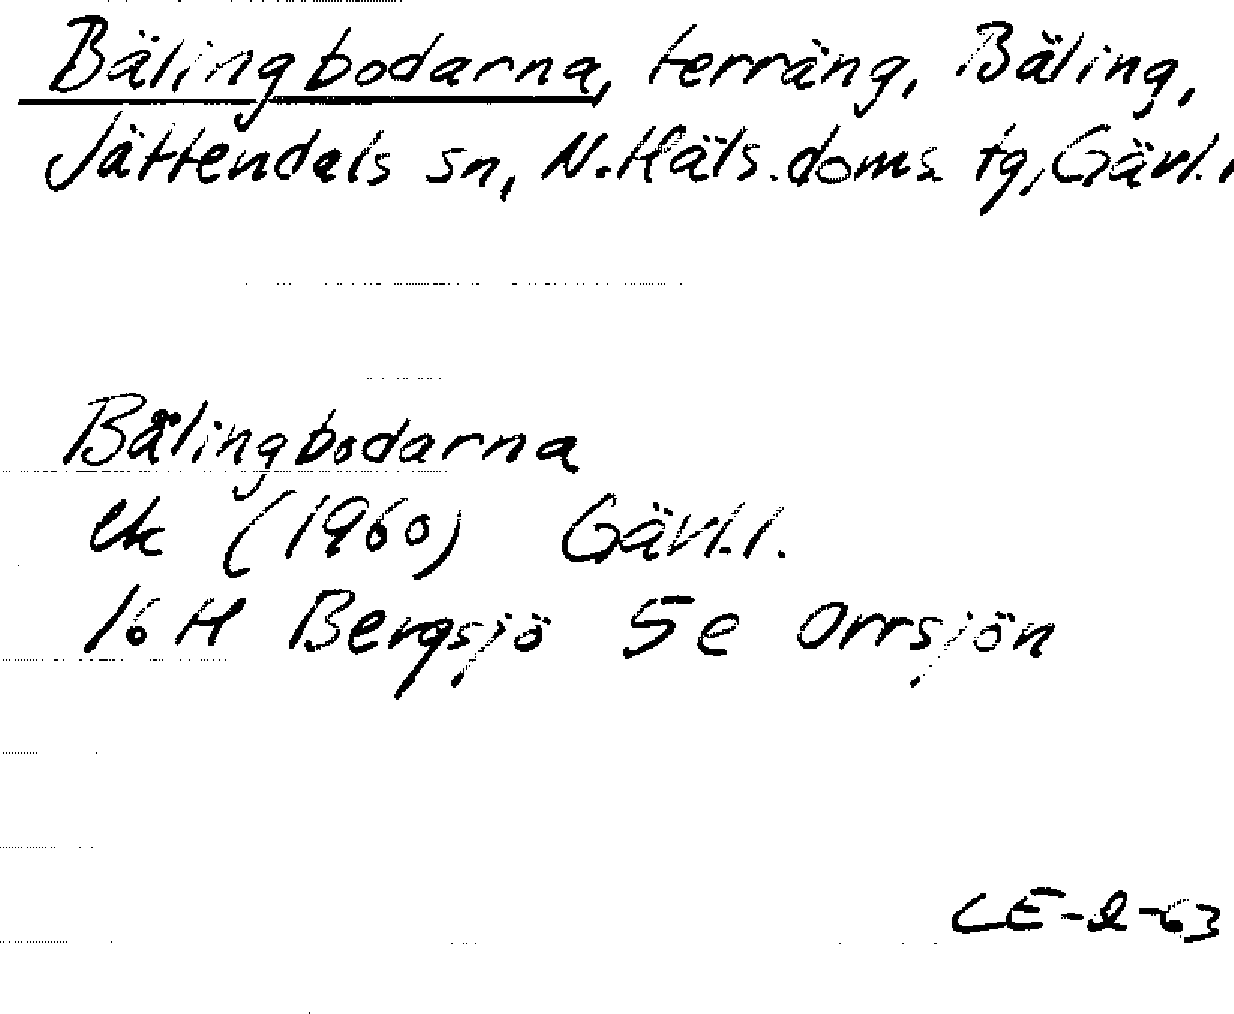 Bälingbodarna, terräng, Bäling,
Jättendals sn, N.Häls.doms. tg, Gävl.l
Bälingbodarna
ek (1960) Gävl.l.
16 H Bergsjö 5e Orrsjön
CE-2-63